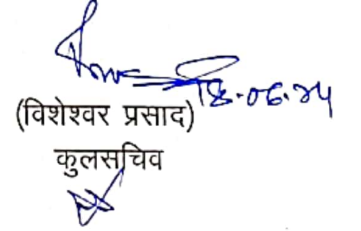 18.06.24
(विशेश्वर प्रसाद)
कुलसचिव